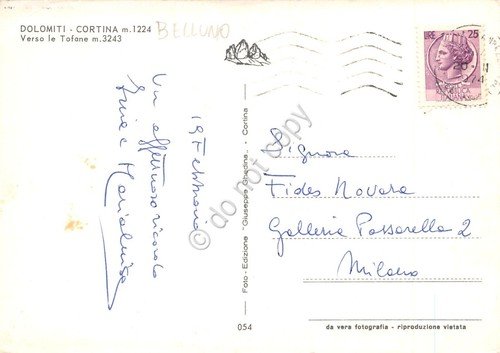 DOLOMITI - CORTINA m.1224
Verso le Tofane m.3243
BELLUNO
LIRE 25
19 Febbraio
Un affettuoso ricordo
Marialuisa
Foto - Edizione "Giuseppe Ghedina" - Cortina
Signora
Fides Novara
Galleria Passarella 2
Milano
054
da vera fotografia - riproduzione vietata
do not copy